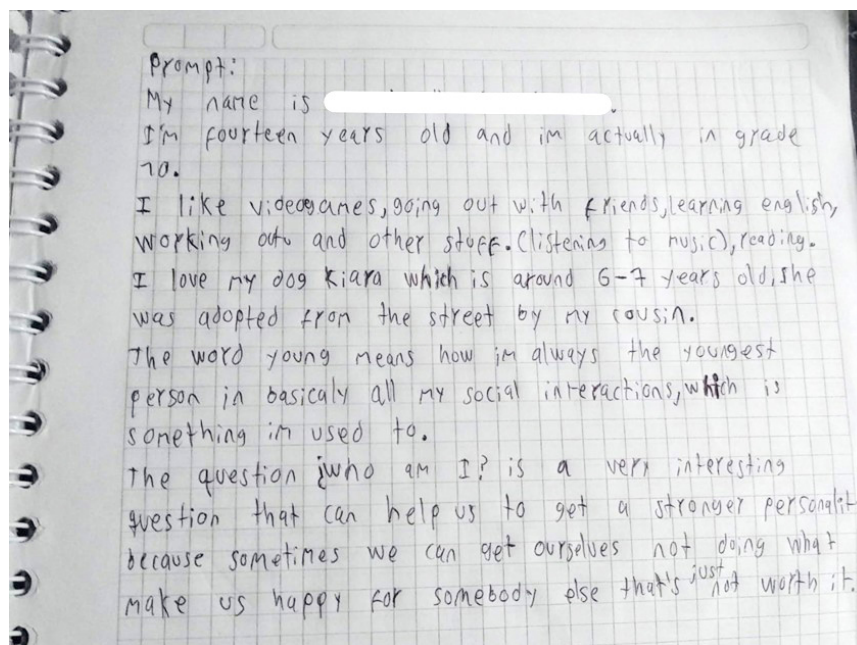 Prompt:
My name is .
I'm fourteen years old and im actually in grade
10.
I like videogames, going out with friends, learning english,
working out and other stuff. (listening to music), reading.
I love my dog Kiara which is around 6-7 years old, she
was adopted from the street by my cousin.
The word young means how im always the youngest
person in basicaly all my social interactions, which is
something im used to.
The question ¿who am I? is a very interesting
question that can help us to get a stronger personalit
because sometimes we can get ourselves not doing what
make us happy for somebody else that's just not worth it.